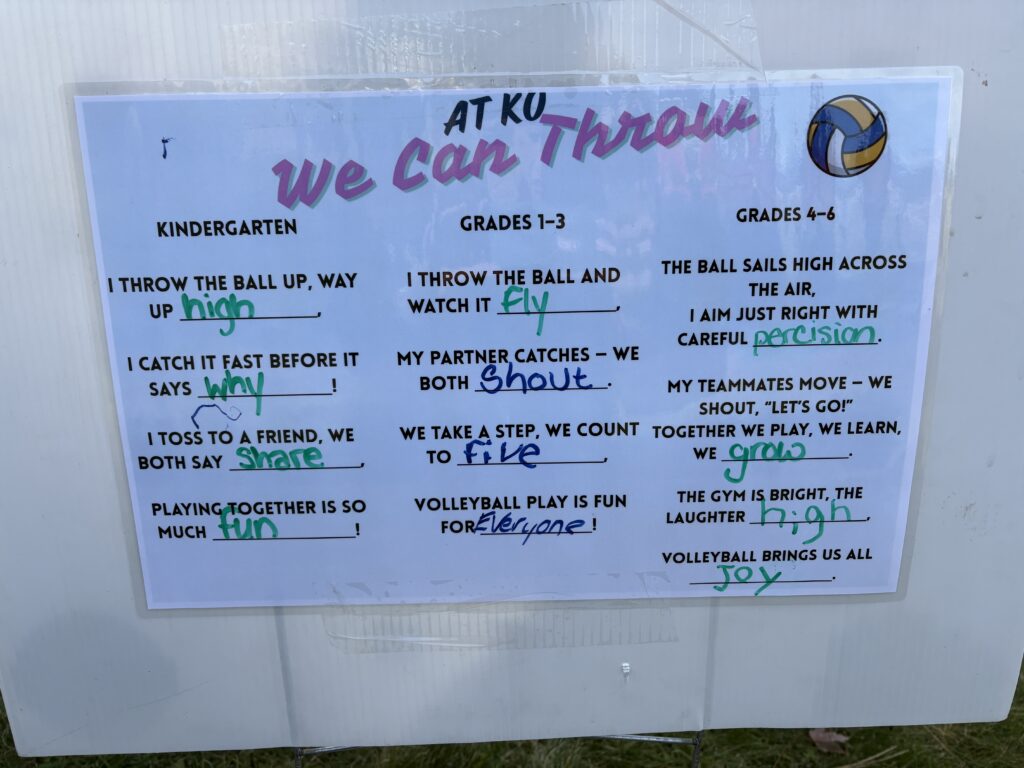 AT KU
We Can Throw
KINDERGARTEN
I THROW THE BALL UP, WAY
UP high,
I CATCH IT FAST BEFORE IT
SAYS why!
I TOSS TO A FRIEND, WE
BOTH SAY share,
PLAYING TOGETHER IS SO
MUCH fun!
GRADES 1–3
I THROW THE BALL AND
WATCH IT fly,
MY PARTNER CATCHES — WE
BOTH Shout.
WE TAKE A STEP, WE COUNT
TO five,
VOLLEYBALL PLAY IS FUN
FOR Everyone!
GRADES 4–6
THE BALL SAILS HIGH ACROSS
THE AIR,
I AIM JUST RIGHT WITH
CAREFUL percision.
MY TEAMMATES MOVE — WE
SHOUT, “LET’S GO!”
TOGETHER WE PLAY, WE LEARN,
WE grow.
THE GYM IS BRIGHT, THE
LAUGHTER high,
VOLLEYBALL BRINGS US ALL
Joy.